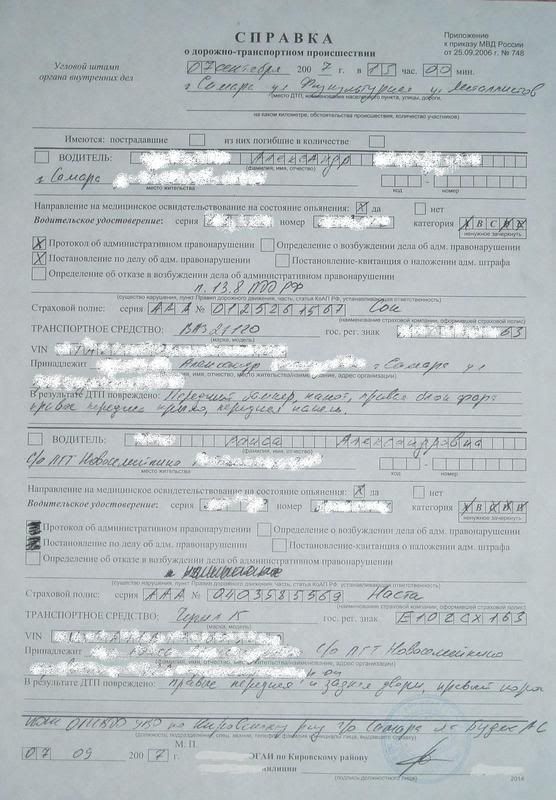 СПРАВКА
о дорожно-транспортном происшествии
Приложение
к приказу МВД России
от 25.09.2006 г. № 748
Угловой штамп
органа внутренних дел
07 сентября 200 7 г. в 15 час. 00 мин.
г Самара ул Физкультурная ул Металлистов
(место ДТП, наименование населенного пункта, улицы, дороги,
на каком километре, обстоятельства происшествия, количество участников)
Имеются: пострадавшие из них погибшие в количестве
ВОДИТЕЛЬ: Александр
(фамилия, имя, отчество)
г Самара
место жительства код номер
Направление на медицинское освидетельствование на состояние опьянения: X да нет
Водительское удостоверение: серия номер категория B C
ненужное зачеркнуть
X Протокол об административном правонарушении Определение о возбуждении дела об адм. правонарушении
X Постановление по делу об адм. правонарушении Постановление-квитанция о наложении адм. штрафа
Определение об отказе в возбуждении дела об административном правонарушении
п. 13.8 ПДД РФ
(существо нарушения, пункт Правил дорожного движения, часть, статья КоАП РФ, устанавливающая ответственность)
Страховой полис: серия ААА №
(наименование страховой компании, оформившей страховой полис)
ТРАНСПОРТНОЕ СРЕДСТВО: ВАЗ 21120 гос. рег. знак 63
(марка, модель)
VIN
Принадлежит Александр г Самара ул
имя, отчество, место жительства/наименование, адрес организации)
В результате ДТП повреждено: Передний бампер, капот, правая блок фара
правое переднее крыло, передняя панель.
ВОДИТЕЛЬ: Александровна
(фамилия, имя, отчество)
с/о ПГТ Новосемейкино
место жительства код номер
Направление на медицинское освидетельствование на состояние опьянения: X да нет
Водительское удостоверение: серия номер категория B
ненужное зачеркнуть
Протокол об административном правонарушении Определение о возбуждении дела об адм. правонарушении
Постановление по делу об адм. правонарушении Постановление-квитанция о наложении адм. штрафа
Определение об отказе в возбуждении дела об административном правонарушении
(существо нарушения, пункт Правил дорожного движения, часть, статья КоАП РФ, устанавливающая ответственность)
Страховой полис: серия ААА № 0403585569 Наста
(наименование страховой компании, оформившей страховой полис)
ТРАНСПОРТНОЕ СРЕДСТВО: гос. рег. знак Е102СХ163
(марка, модель)
VIN
Принадлежит с/о ПГТ Новосемейкино
(фамилия, имя, отчество, место жительства/наименование, адрес организации)
В результате ДТП повреждено: правые передняя и задняя двери, правый порог
по Кировскому г/о Самара
(должность, подразделение, спец. звание, фамилия, инициалы лица, выдавшего справку)
М. П.
07 09 200 7 ЭГАИ по Кировскому району
милиции
(подпись должностного лица)
2014